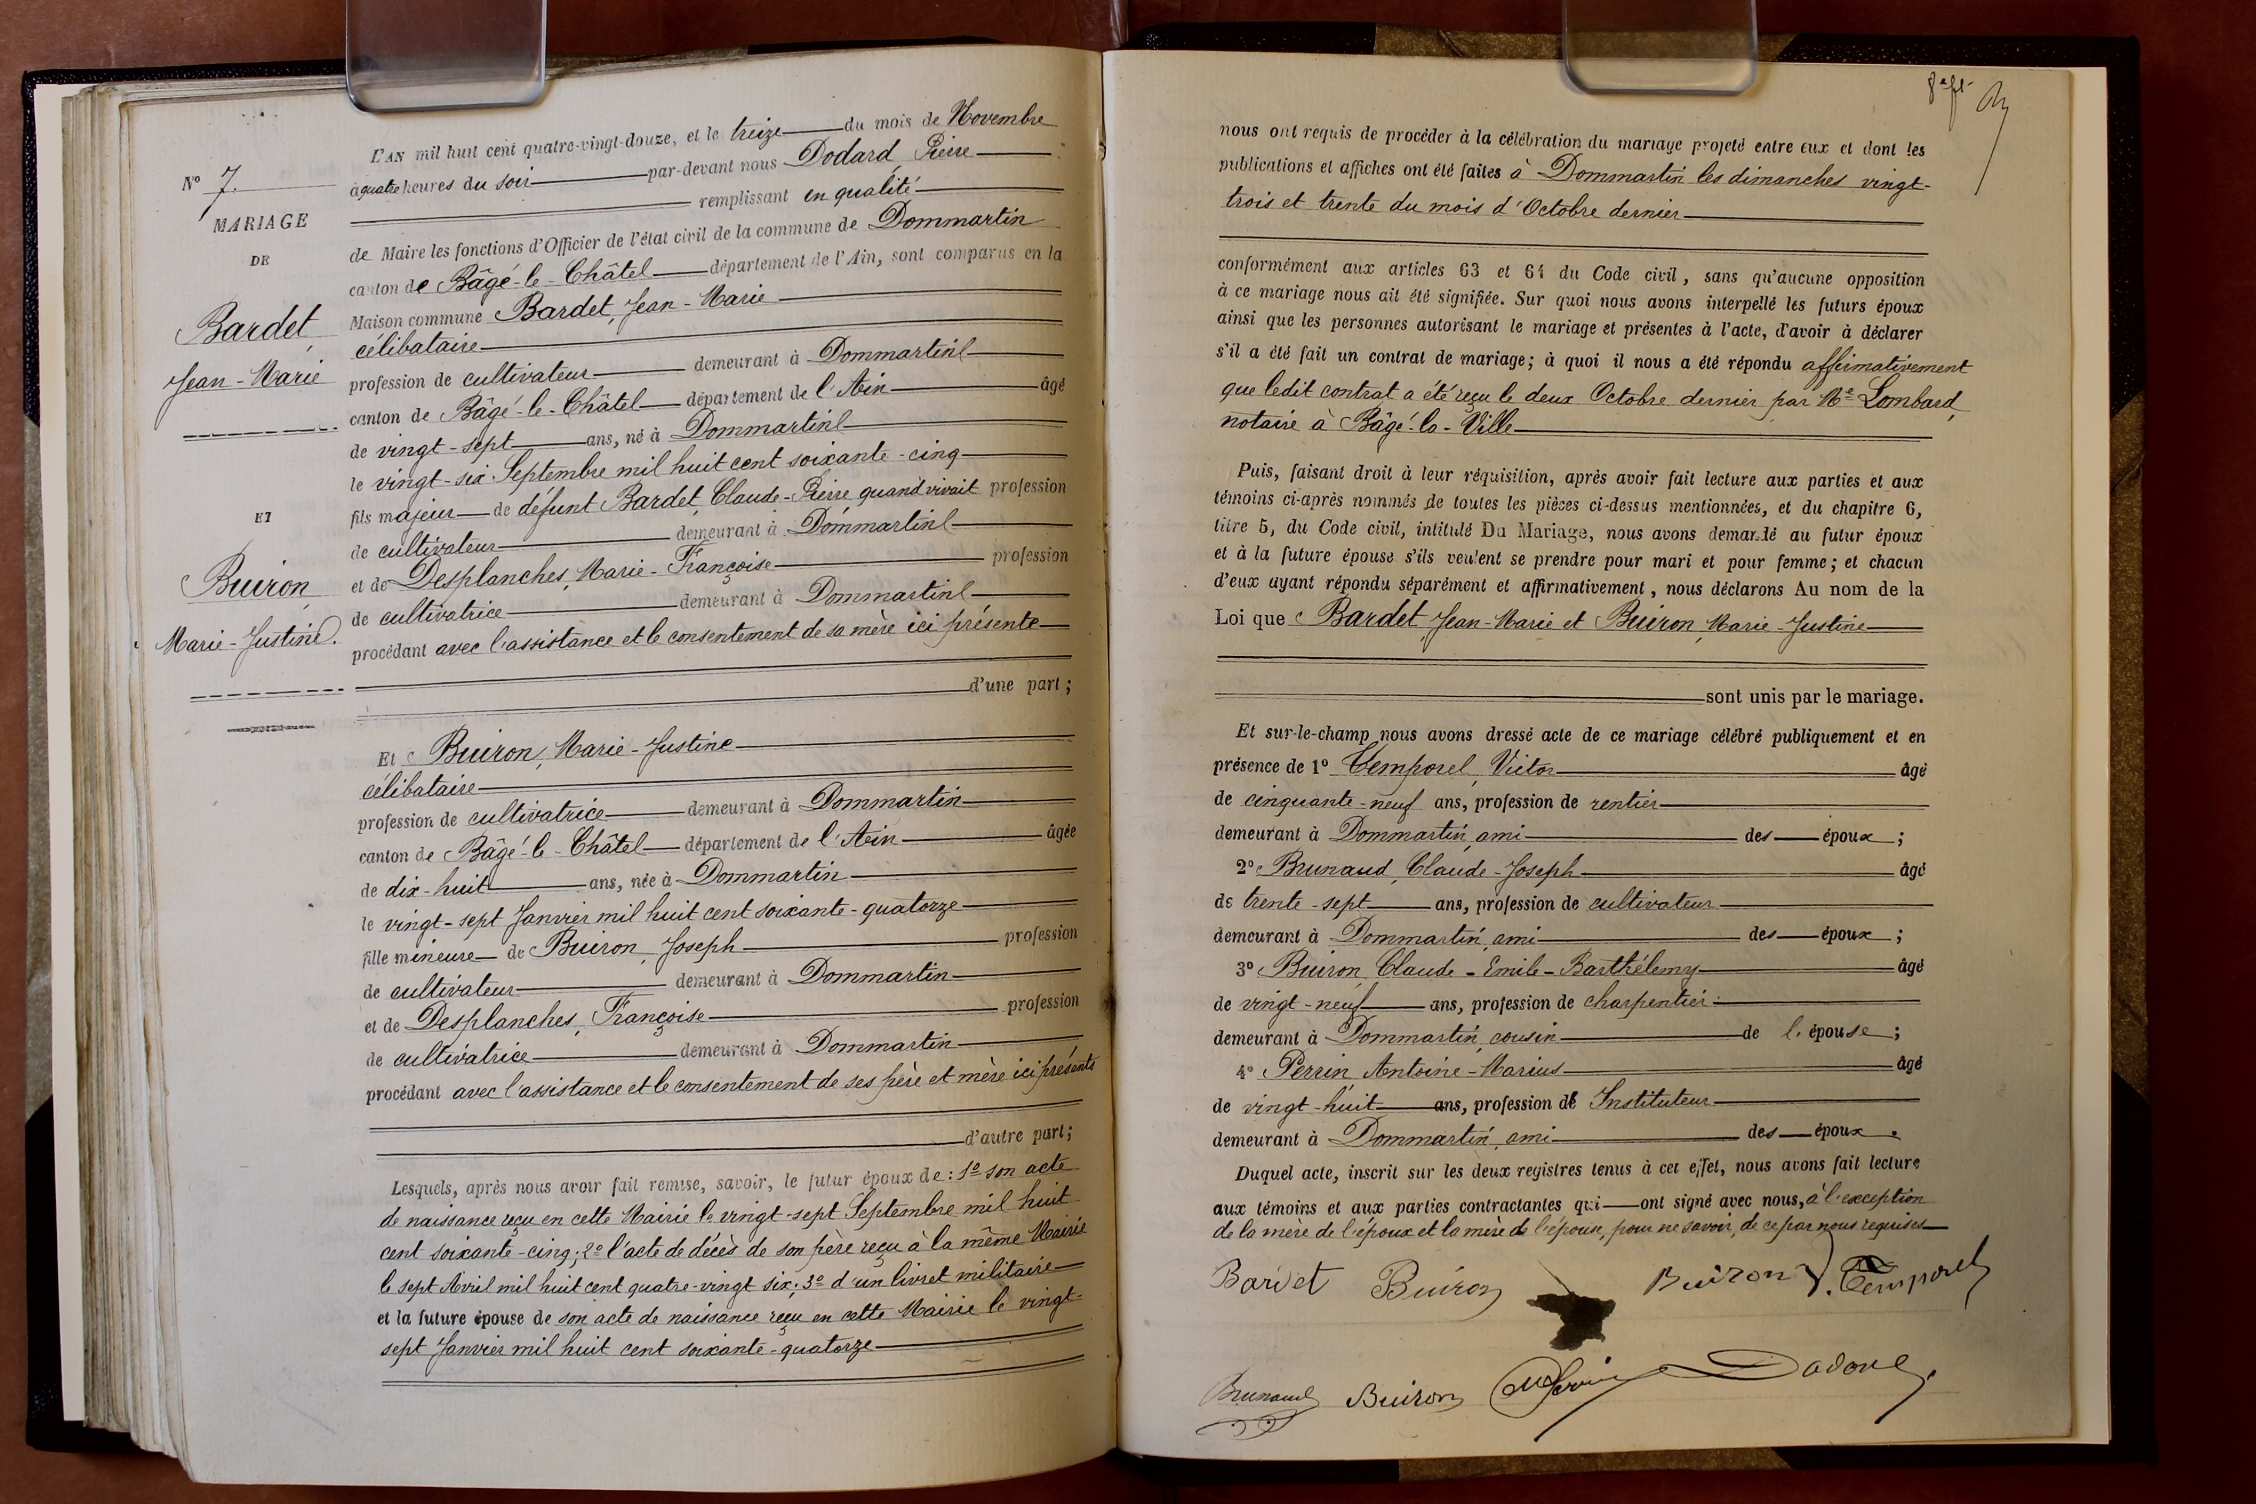 N° 7.
MARIAGE
DE
Bardet,
Jean-Marie
ET
Buiron,
Marie-Justine.
L'AN mil huit cent quatre-vingt-douze, et le treize du mois de Novembre
à quatre heures du soir par-devant nous Dodard Pierre
remplissant en qualité
de Maire les fonctions d'Officier de l'état civil de la commune de Dommartin
canton de Bâgé-le-Châtel département de l'Ain, sont comparus en la
Maison commune Bardet, Jean-Marie
célibataire
profession de cultivateur demeurant à Dommartin
canton de Bâgé-le-Châtel département de l'Ain âgé
de vingt-sept ans, né à Dommartin
le vingt-six Septembre mil huit cent soixante-cinq
fils majeur de défunt Bardet, Claude-Pierre quand vivait profession
de cultivateur demeurant à Dommartin
et de Desplanches, Marie-Françoise profession
de cultivatrice demeurant à Dommartin
procédant avec l'assistance et le consentement de sa mère ici présente
d'une part;
Et Buiron, Marie-Justine
célibataire
profession de cultivatrice demeurant à Dommartin
canton de Bâgé-le-Châtel département de l'Ain âgée
de dix-huit ans, née à Dommartin
le vingt-sept Janvier mil huit cent soixante-quatorze
fille mineure de Buiron, Joseph profession
de cultivateur demeurant à Dommartin
et de Desplanches, Françoise profession
de cultivatrice demeurant à Dommartin
procédant avec l'assistance et le consentement de ses père et mère ici présents
d'autre part;
Lesquels, après nous avoir fait remise, savoir, le futur époux de: 1° son acte
de naissance reçu en cette Mairie le vingt-sept Septembre mil huit
cent soixante-cinq; 2° l'acte de décès de son père reçu à la même Mairie
le sept Avril mil huit cent quatre-vingt six; 3° d'un livret militaire
et la future épouse de son acte de naissance reçu en cette Mairie le vingt-
sept Janvier mil huit cent soixante-quatorze
nous ont requis de procéder à la célébration du mariage projeté entre eux et dont les
publications et affiches ont été faites à Dommartin les dimanches vingt-
trois et trente du mois d'Octobre dernier
conformément aux articles 63 et 64 du Code civil, sans qu'aucune opposition
à ce mariage nous ait été signifiée. Sur quoi nous avons interpellé les futurs époux
ainsi que les personnes autorisant le mariage et présentes à l'acte, d'avoir à déclarer
s'il a été fait un contrat de mariage; à quoi il nous a été répondu affirmativement
que ledit contrat a été reçu le deux Octobre dernier par Me Lombard,
notaire à Bâgé-la-Ville
Puis, faisant droit à leur réquisition, après avoir fait lecture aux parties et aux
témoins ci-après nommés de toutes les pièces ci-dessus mentionnées, et du chapitre 6,
titre 5, du Code civil, intitulé Du Mariage, nous avons demandé au futur époux
et à la future épouse s'ils veulent se prendre pour mari et pour femme; et chacun
d'eux ayant répondu séparément et affirmativement, nous déclarons Au nom de la
Loi que Bardet Jean-Marie et Buiron, Marie-Justine
sont unis par le mariage.
Et sur-le-champ nous avons dressé acte de ce mariage célébré publiquement et en
présence de 1° Temporel, Victor âgé
de cinquante-neuf ans, profession de rentier
demeurant à Dommartin, ami des époux;
2° Brunaud, Claude-Joseph âgé
de trente-sept ans, profession de cultivateur
demeurant à Dommartin, ami des époux;
3° Buiron, Claude-Emile-Barthélemy âgé
de vingt-neuf ans, profession de charpentier
demeurant à Dommartin, cousin de l'épouse;
4° Perrin Antoine-Marius âgé
de vingt-huit ans, profession de Instituteur
demeurant à Dommartin, ami des époux.
Duquel acte, inscrit sur les deux registres tenus à cet effet, nous avons fait lecture
aux témoins et aux parties contractantes qui ont signé avec nous, à l'exception
de la mère de l'époux et la mère de l'épouse, pour ne savoir, de ce par nous requises
Bardet Buiron Buiron V. Temporel
Brunaud Buiron Perrin Dodard